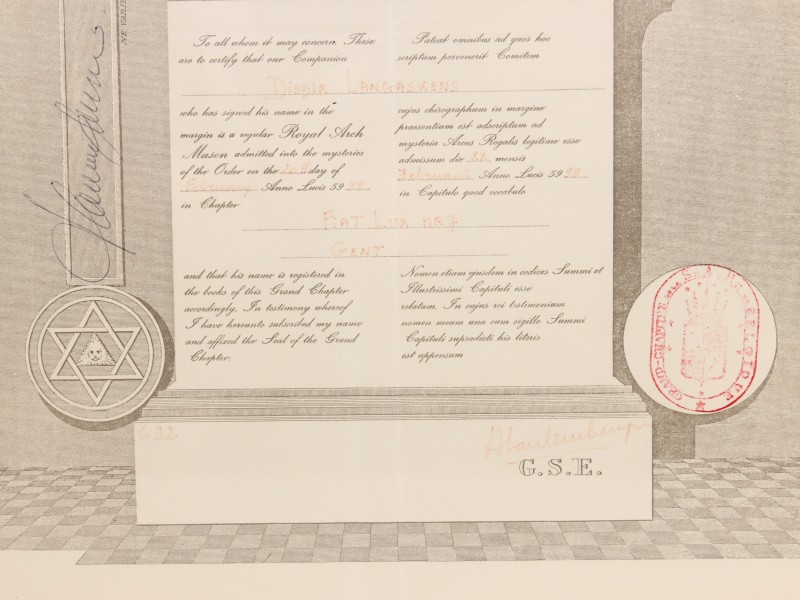 NE VARIE
To all whom it may concern. These
are to certify that our Companion
Pateat omnibus ad quos hoc
scriptum pervenerit Comitem
LANGASKENS
who has signed his name in the
margin is a regular Royal Arch
Mason admitted into the mysteries
of the Order on the day of
Anno Lucis 59
in Chapter
cujus chirographum in margine
praesentium est adscriptum ad
mysteria Arcus Regalis legitime esse
admissum die 22 mensis
Februarii Anno Lucis 59 98
in Capitulo quod vocabulo
FIAT LUX NR 7
GENT
and that his name is registered in
the books of this Grand Chapter
accordingly. In testimony whereof
I have hereunto subscribed my name
and affixed the Seal of the Grand
Chapter.
Nomen etiam ejusdem in codices Summi et
Illustrissimi Capituli esse
relatum. In cujus rei testimonium
nomen meum una cum sigillo Summi
Capituli supradicti his literis
est appensum
GRAND-CHAPITRE BELGIQUE
692
G.S.E.